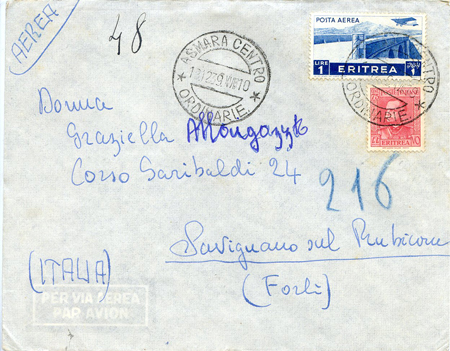 AEREA
48
ASMARA CENTRO
* ORDINARIE *
POSTA AEREA
LIRE 1 ERITREA
ERITREA
Donna
Graziella
Corso Garibaldi 24
216
Savignano sul Rubicone
(Forlì)
(ITALIA)
PER VIA AEREA
PAR AVION